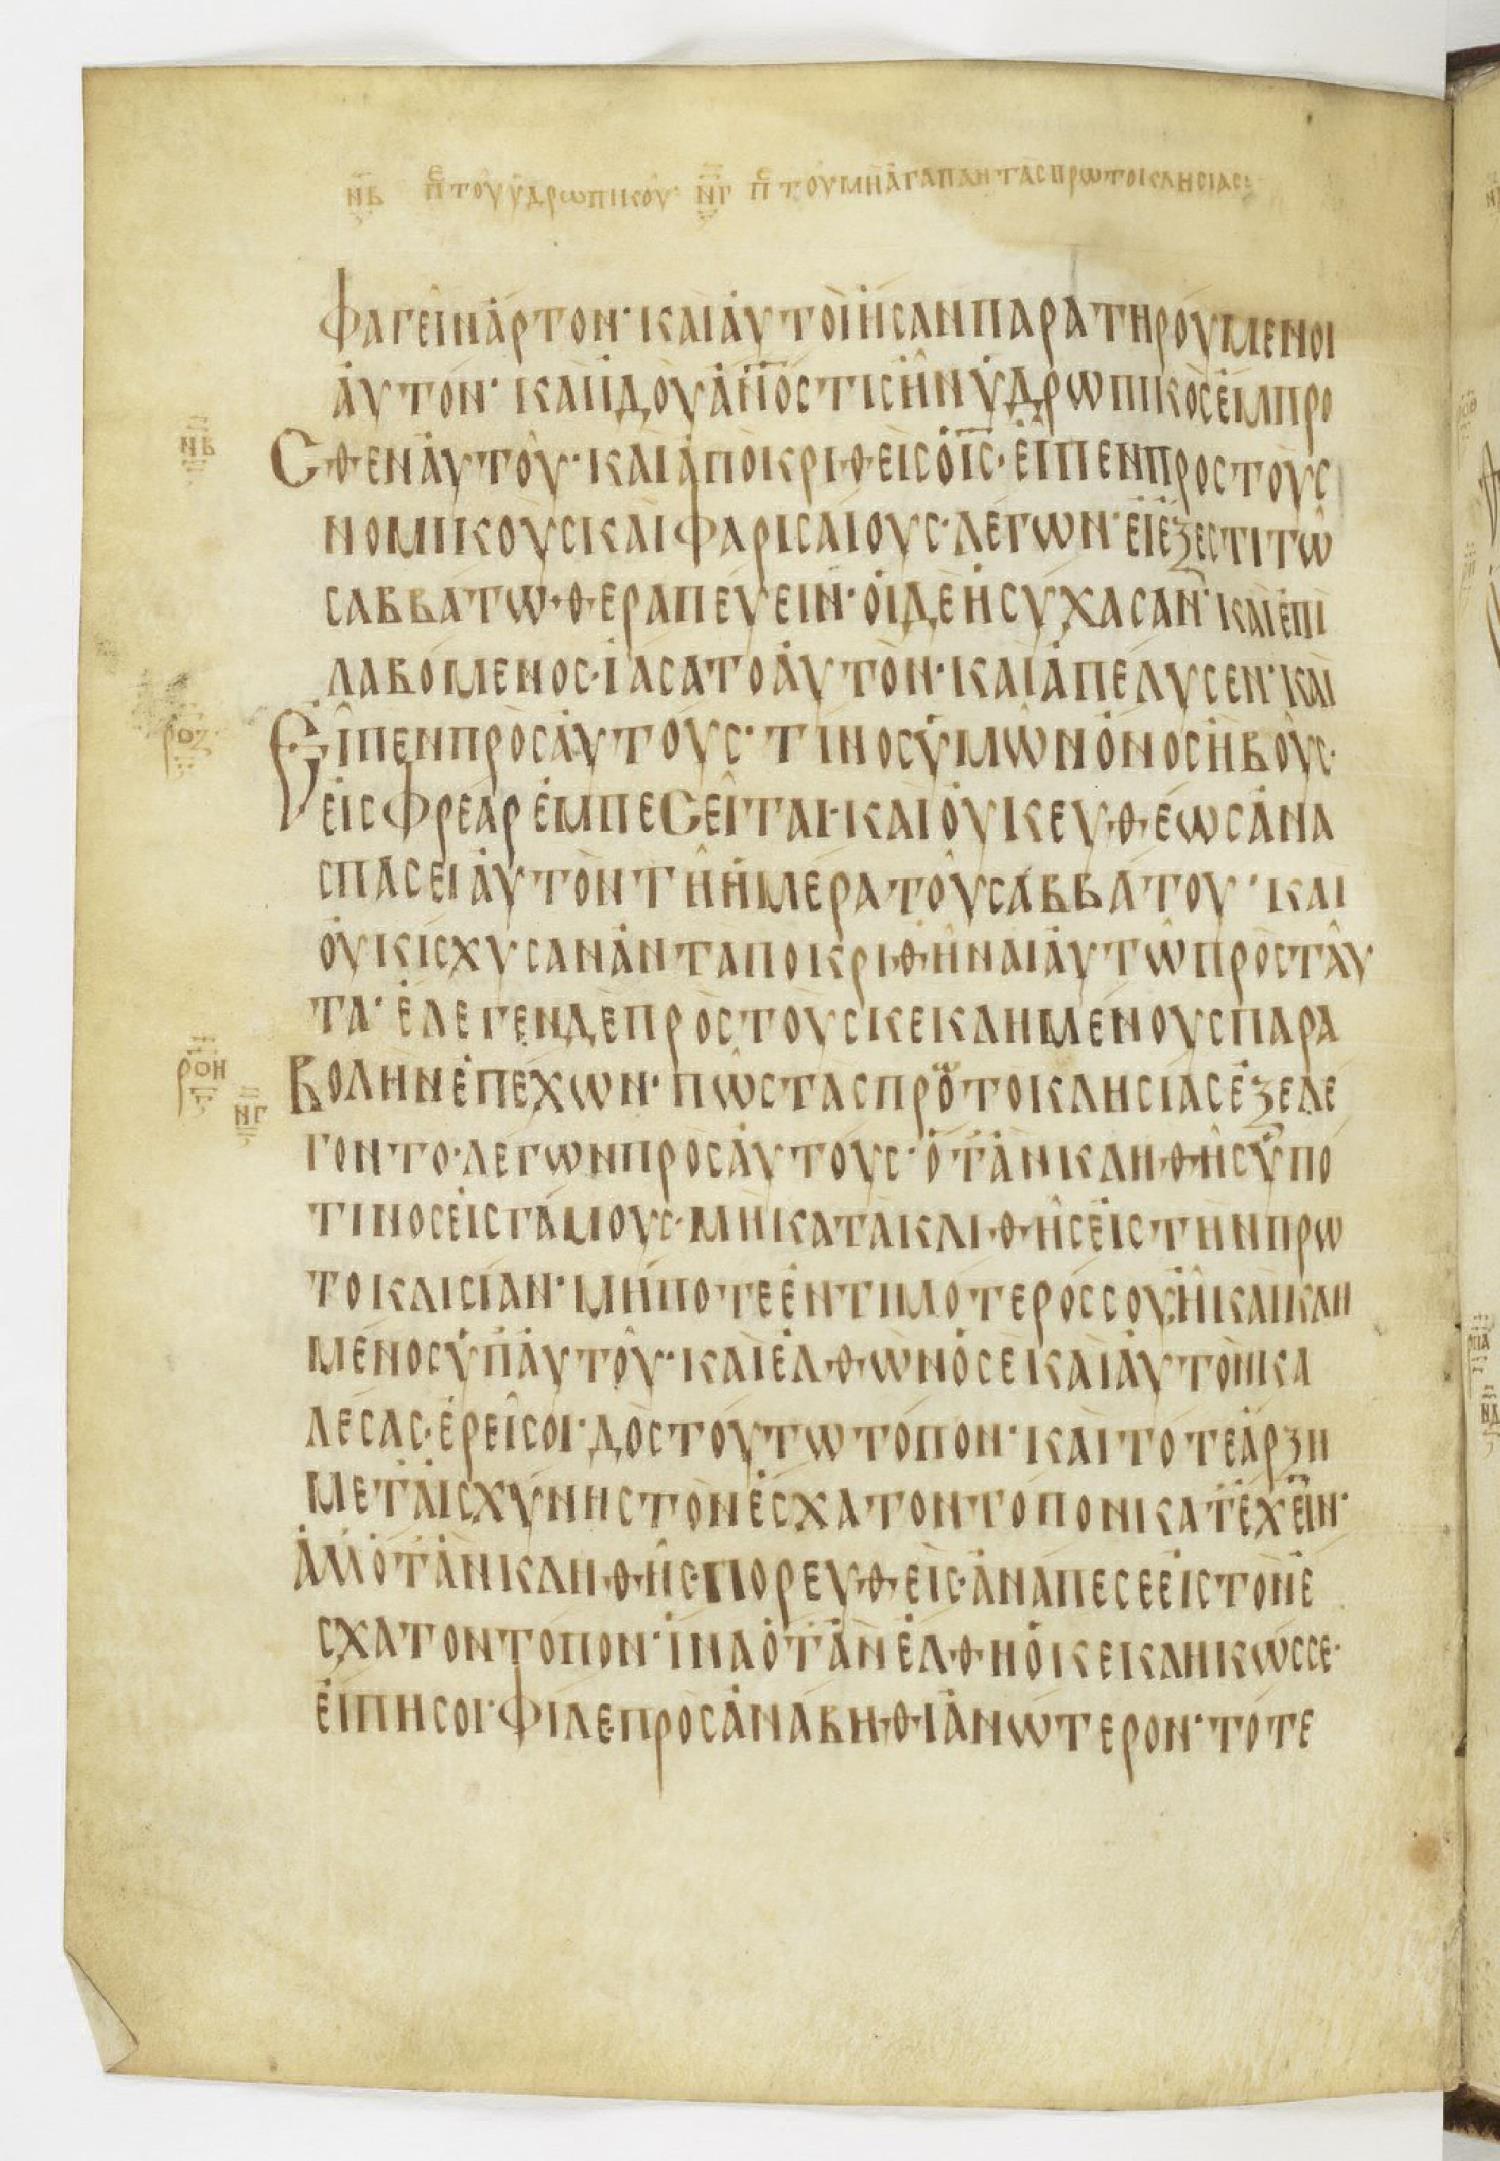 ΝΒ ΠΕ ΤΟΥ ΥΔΡΩΠΙΚΟΥ· ΝΓ ΠΕ ΤΟΥ ΜΗ ΑΓΑΠΑΝ ΤΑΣ ΠΡΩΤΟΚΛΗΣΙΑΣ
ΦΑΓΕΙΝ ΑΡΤΟΝ· ΚΑΙ ΑΥΤΟΙ ΗΣΑΝ ΠΑΡΑΤΗΡΟΥΜΕΝΟΙ
ΑΥΤΟΝ· ΚΑΙ ΙΔΟΥ ΑΝΟΣ ΤΙΣ ΗΝ ΥΔΡΩΠΙΚΟΣ ΕΜΠΡΟ
ΝΒ
ΣΘΕΝ ΑΥΤΟΥ· ΚΑΙ ΑΠΟΚΡΙΘΕΙΣ Ο ΙΣ· ΕΙΠΕΝ ΠΡΟΣ ΤΟΥΣ
ΝΟΜΙΚΟΥΣ ΚΑΙ ΦΑΡΙΣΑΙΟΥΣ· ΛΕΓΩΝ· ΕΙ ΕΞΕΣΤΙ ΤΩ
ΣΑΒΒΑΤΩ ΘΕΡΑΠΕΥΕΙΝ· ΟΙ ΔΕ ΗΣΥΧΑΣΑΝ· ΚΑΙ ΕΠΙ
ΛΑΒΟΜΕΝΟΣ· ΙΑΣΑΤΟ ΑΥΤΟΝ· ΚΑΙ ΑΠΕΛΥΣΕΝ· ΚΑΙ
ΡΟΖ
ΕΙΠΕΝ ΠΡΟΣ ΑΥΤΟΥΣ· ΤΙΝΟΣ ΥΜΩΝ ΟΝΟΣ Η ΒΟΥΣ·
ΕΙΣ ΦΡΕΑΡ ΕΜΠΕΣΕΙΤΑΙ· ΚΑΙ ΟΥΚ ΕΥΘΕΩΣ ΑΝΑ
ΣΠΑΣΕΙ ΑΥΤΟΝ ΤΗ ΗΜΕΡΑ ΤΟΥ ΣΑΒΒΑΤΟΥ· ΚΑΙ
ΟΥΚ ΙΣΧΥΣΑΝ ΑΝΤΑΠΟΚΡΙΘΗΝΑΙ ΑΥΤΩ ΠΡΟΣ ΤΑΥ
ΤΑ· ΕΛΕΓΕΝ ΔΕ ΠΡΟΣ ΤΟΥΣ ΚΕΚΛΗΜΕΝΟΥΣ ΠΑΡΑ
ΡΟΗ ΝΓ
ΒΟΛΗΝ ΕΠΕΧΩΝ· ΠΩΣ ΤΑΣ ΠΡΟΤΟΚΛΗΣΙΑΣ ΕΞΕΛΕ
ΓΟΝΤΟ· ΛΕΓΩΝ ΠΡΟΣ ΑΥΤΟΥΣ· ΟΤΑΝ ΚΛΗΘΗΣ ΥΠΟ
ΤΙΝΟΣ ΕΙΣ ΓΑΜΟΥΣ· ΜΗ ΚΑΤΑΚΛΙΘΗΣ ΕΙΣ ΤΗΝ ΠΡΩ
ΤΟΚΛΙΣΙΑΝ· ΜΗΠΟΤΕ ΕΝΤΙΜΟΤΕΡΟΣ ΣΟΥ Η ΚΑΙ ΚΛΗ
ΜΕΝΟΣ ΥΠ ΑΥΤΟΥ· ΚΑΙ ΕΛΘΩΝ Ο ΣΕ ΚΑΙ ΑΥΤΟΝ ΚΑ
ΛΕΣΑΣ· ΕΡΕΙ ΣΟΙ· ΔΟΣ ΤΟΥΤΩ ΤΟΠΟΝ· ΚΑΙ ΤΟΤΕ ΑΡΞΗ
ΜΕΤ ΑΙΣΧΥΝΗΣ ΤΟΝ ΕΣΧΑΤΟΝ ΤΟΠΟΝ ΚΑΤΕΧΕΙΝ·
ΑΛΛ ΟΤΑΝ ΚΛΗΘΗΣ· ΠΟΡΕΥΘΕΙΣ· ΑΝΑΠΕΣΕ ΕΙΣ ΤΟΝ Ε
ΣΧΑΤΟΝ ΤΟΠΟΝ· ΙΝΑ ΟΤΑΝ ΕΛΘΗ Ο ΚΕΚΛΗΚΩΣ ΣΕ·
ΕΙΠΗ ΣΟΙ· ΦΙΛΕ ΠΡΟΣΑΝΑΒΗΘΙ ΑΝΩΤΕΡΟΝ· ΤΟΤΕ